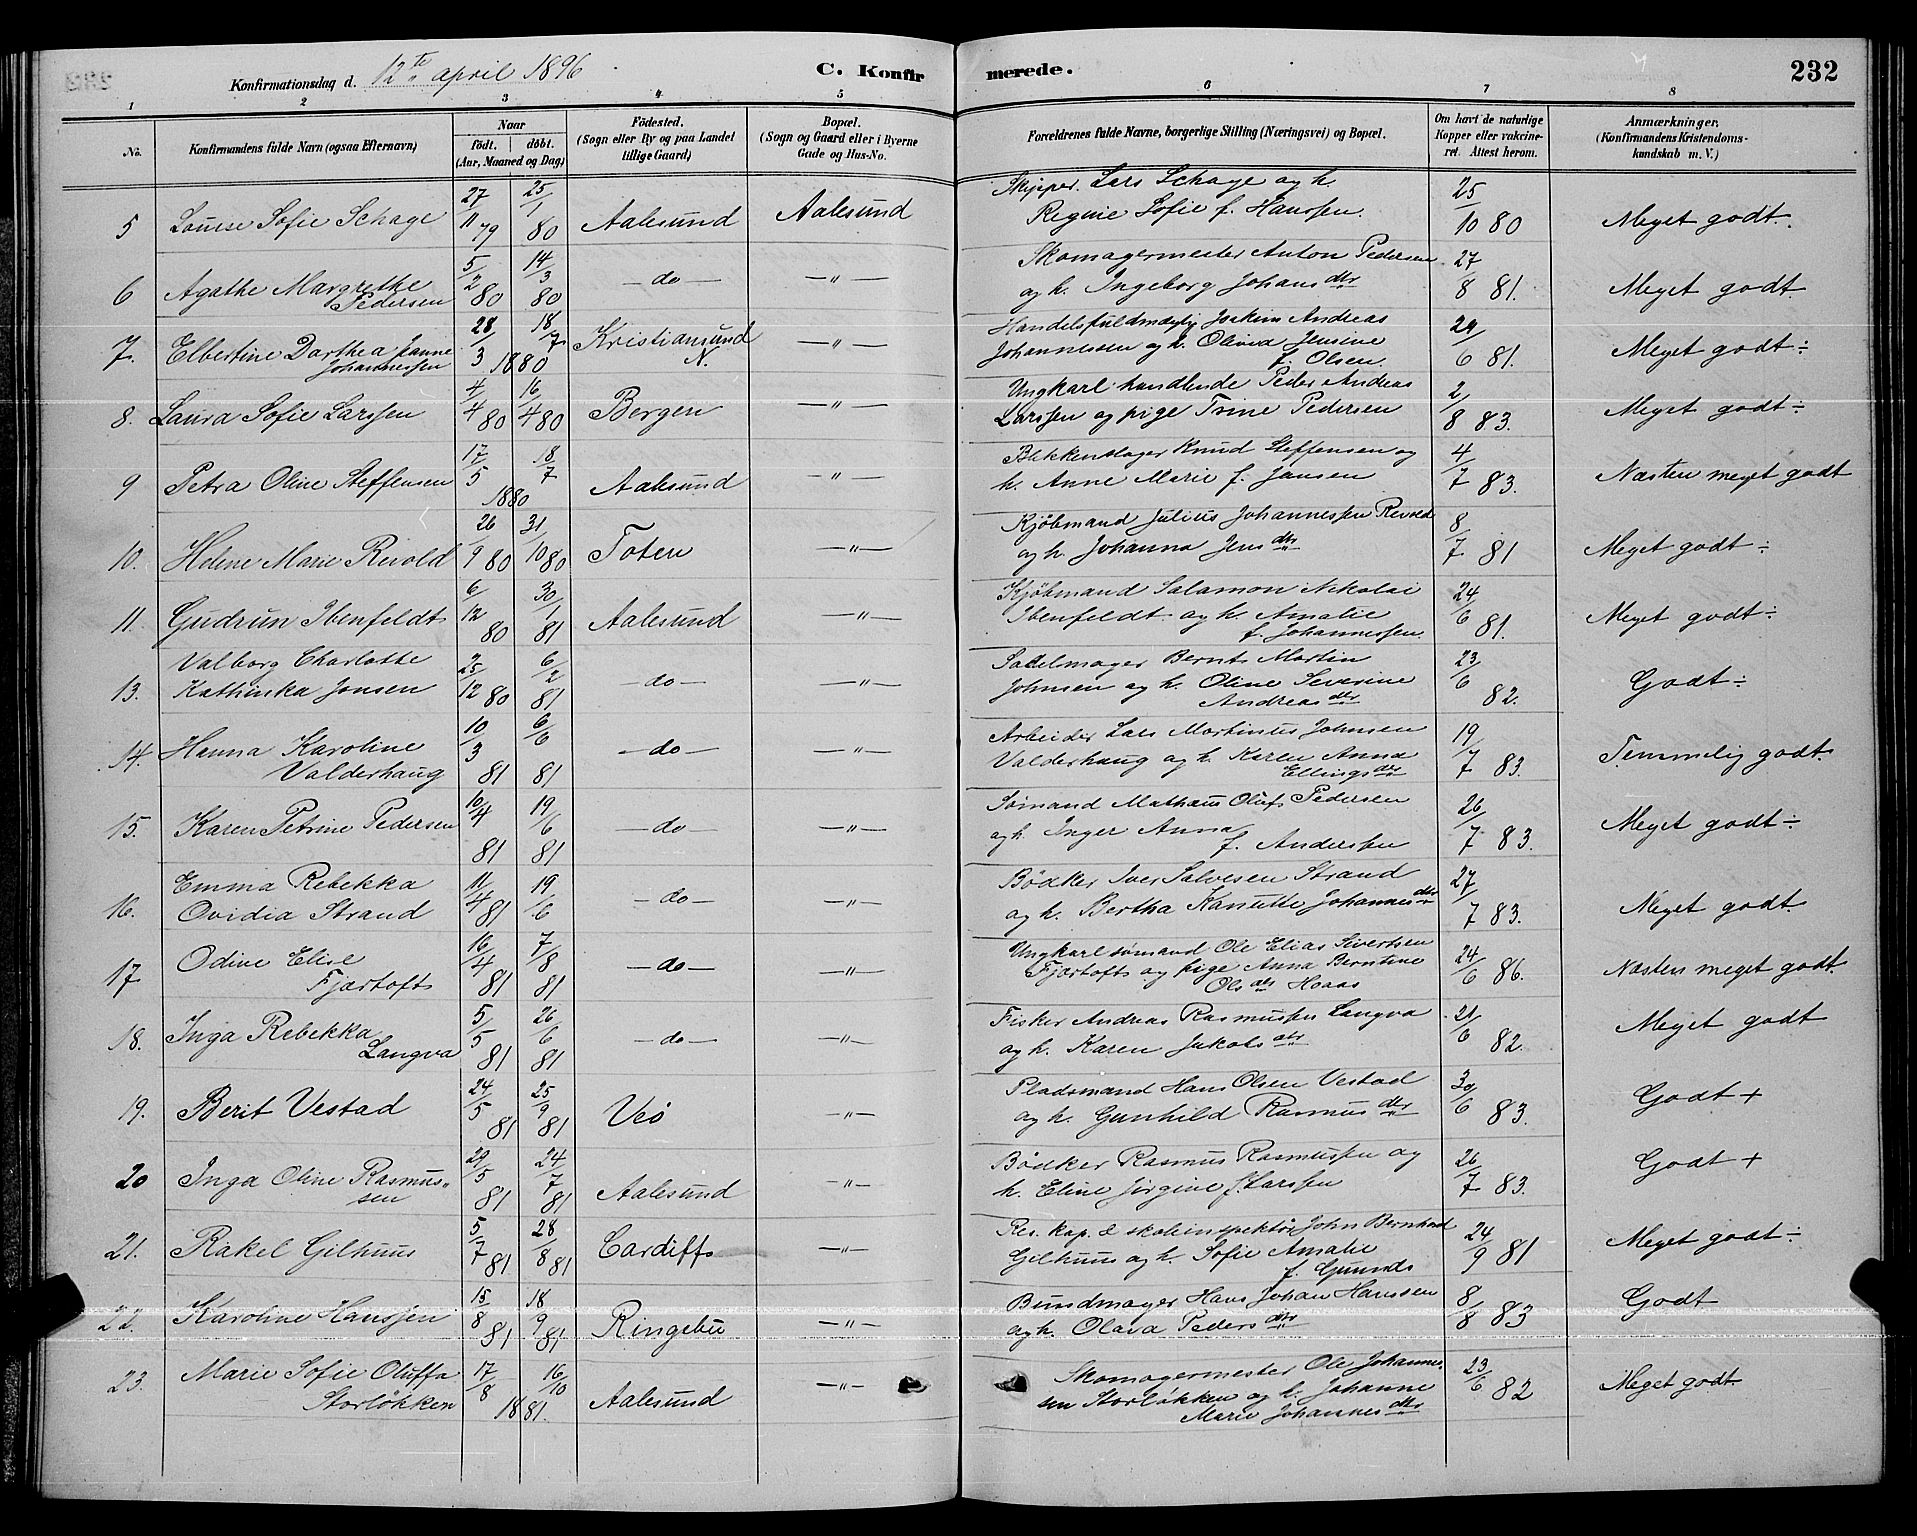 Konfirmationsdag d. 12te april 1896
C. Konfirmerede.
232
1 2 3 4 5 6 7 8
No.
Konfirmandens fulde Navn (ogsaa Efternavn)
Naar
født. døbt.
(Aar, Maaned og Dag)
Fødested.
(Sogn eller By og paa Landet
tillige Gaard)
Bopæl.
(Sogn og Gaard eller i Byerne
Gade og Hus-No.
Forældrenes fulde Navne, borgerlige Stilling (Næringsvei) og Bopæl.
Om havt de naturlige
Kopper eller vakcine-
ret. Attest herom.
Anmærkninger.
(Konfirmandens Kristendoms-
kundskab m. V.)
5 Louise Sofie Schage 27/11 79 25/1 80 Aalesund Aalesund Skipper Lars Schage og h.
Regine Sofie f. Hanssen. 25/10 80 Meget godt.
6 Agathe Margrethe
Pedersen 5/2 80 14/3 80 — do — — " — Skomagermester Anton Pedersen
og h. Ingeborg Johansdtr 27/8 81. Meget godt.
7. Elbertine Dorthea Janne
Johannessen 28/3 18/7 1880 Kristiansund
N. — " — Handelsfuldmægtig Joakim Andreas
Johannessen og h. Olivia Jensine
f. Olsen. 29/6 81. Meget godt ÷
8. Laura Sofie Larssen 4/4 80 16/4 80 Bergen — " — Ungkarl handlende Peder Andreas
Larssen og pige Trine Pedersen 2/8 83. Meget godt ÷
9 Petra Oline Steffensen 17/5 18/7 1880 Aalesund — " — Blikkenslager Knud Steffensen og
h. Anne Marie f. Jansen 4/7 83. Næsten meget godt
10. Helene Marie Revold 26/9 80 31/10 80 Toten — " — Kjøbmand Julius Johannessen Revold
og h. Johanna Jensdtr 8/7 81 Meget godt ÷
11. Gudrun Ibenfeldt 6/12 80 30/1 81 Aalesund — " — Kjøbmand Salamon Nikolai
Ibenfeldt og h. Amalie
f. Johannessen. 24/6 81. Meget godt ÷
13. Valborg Charlotte
Kathinka Jonsen 25/12 80 6/2 81 — do — — " — Sadelmager Bernt Martin
Johnsen og h. Oline Severine
Andreasdtr 23/6 82. Godt ÷
14. Hanna Karoline
Valderhaug 10/3 81 6/6 81 — do — — " — Arbeider Lars Martinus Johnsen
Valderhaug og h. Karen Anna
Ellingsdtr 19/7 83. Temmelig godt.
15. Karen Petrine Pedersen 10/4 81 19/6 81 — do — — " — Sømand Mathæus Oluf Pedersen
og h. Inger Anna
f. Anderssen 26/7 83. Meget godt ÷
16. Emma Rebekka
Ovidia Strand 11/4 81 19/6 — do — — " — Bødker Iver Salvesen Strand
og h. Bertha Kanutte Johannesdtr 27/7 83. Meget godt.
17 Odine Elise
Fjærtoft 16/4 81 7/8 81 — do — — " — Ungkarl sømand Ole Elias Sivertsen
Fjærtoft og pige Anna Berntine
Olsdtr Hoaas 24/6 86. Næsten meget godt.
18. Inga Rebekka
Langva 5/5 81 26/6 81 — do — — " — Fisker Andreas Rasmussen Langva
og h. Karen Jakobsdtr 21/6 82. Meget godt
19. Berit Vestad 24/5 81 25/9 81 Veø — " — Pladsmand Hans Olsen Vestad
og h. Gunhild Rasmusdtr 30/6 83. Godt +
20 Inga Oline Rasmus-
sen 29/5 81 24/7 81 Aalesund — " — Bødker Rasmus Rasmussen og
h. Eline Jørgine f. Larssen 26/7 83. Godt +
21. Rakel Gilhuus 5/7 81 28/8 81 Cardiff — " — Res. kap. & skoleinspektør John Bernhard
Gilhuus og h. Sofie Amalie
f. 24/9 81 Meget godt ÷
22. Karoline Hanssen 15/8 81 18/9 81 Ringebu — " — Bundmager Hans Johan Hanssen
og h. Olava Pedersdtr 8/8 83 Godt
23. Marie Sofie Oluffa
Storløkken 17/8 16/10 1881. Aalesund — " — Skomagermester Ole Johannes-
sen Storløkken og h. Johanne
Marie Johannesdtr 23/6 82 Meget godt.